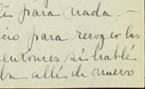 para nada. —
cio para recoger las
entonces sí hablé
allí de nuevo